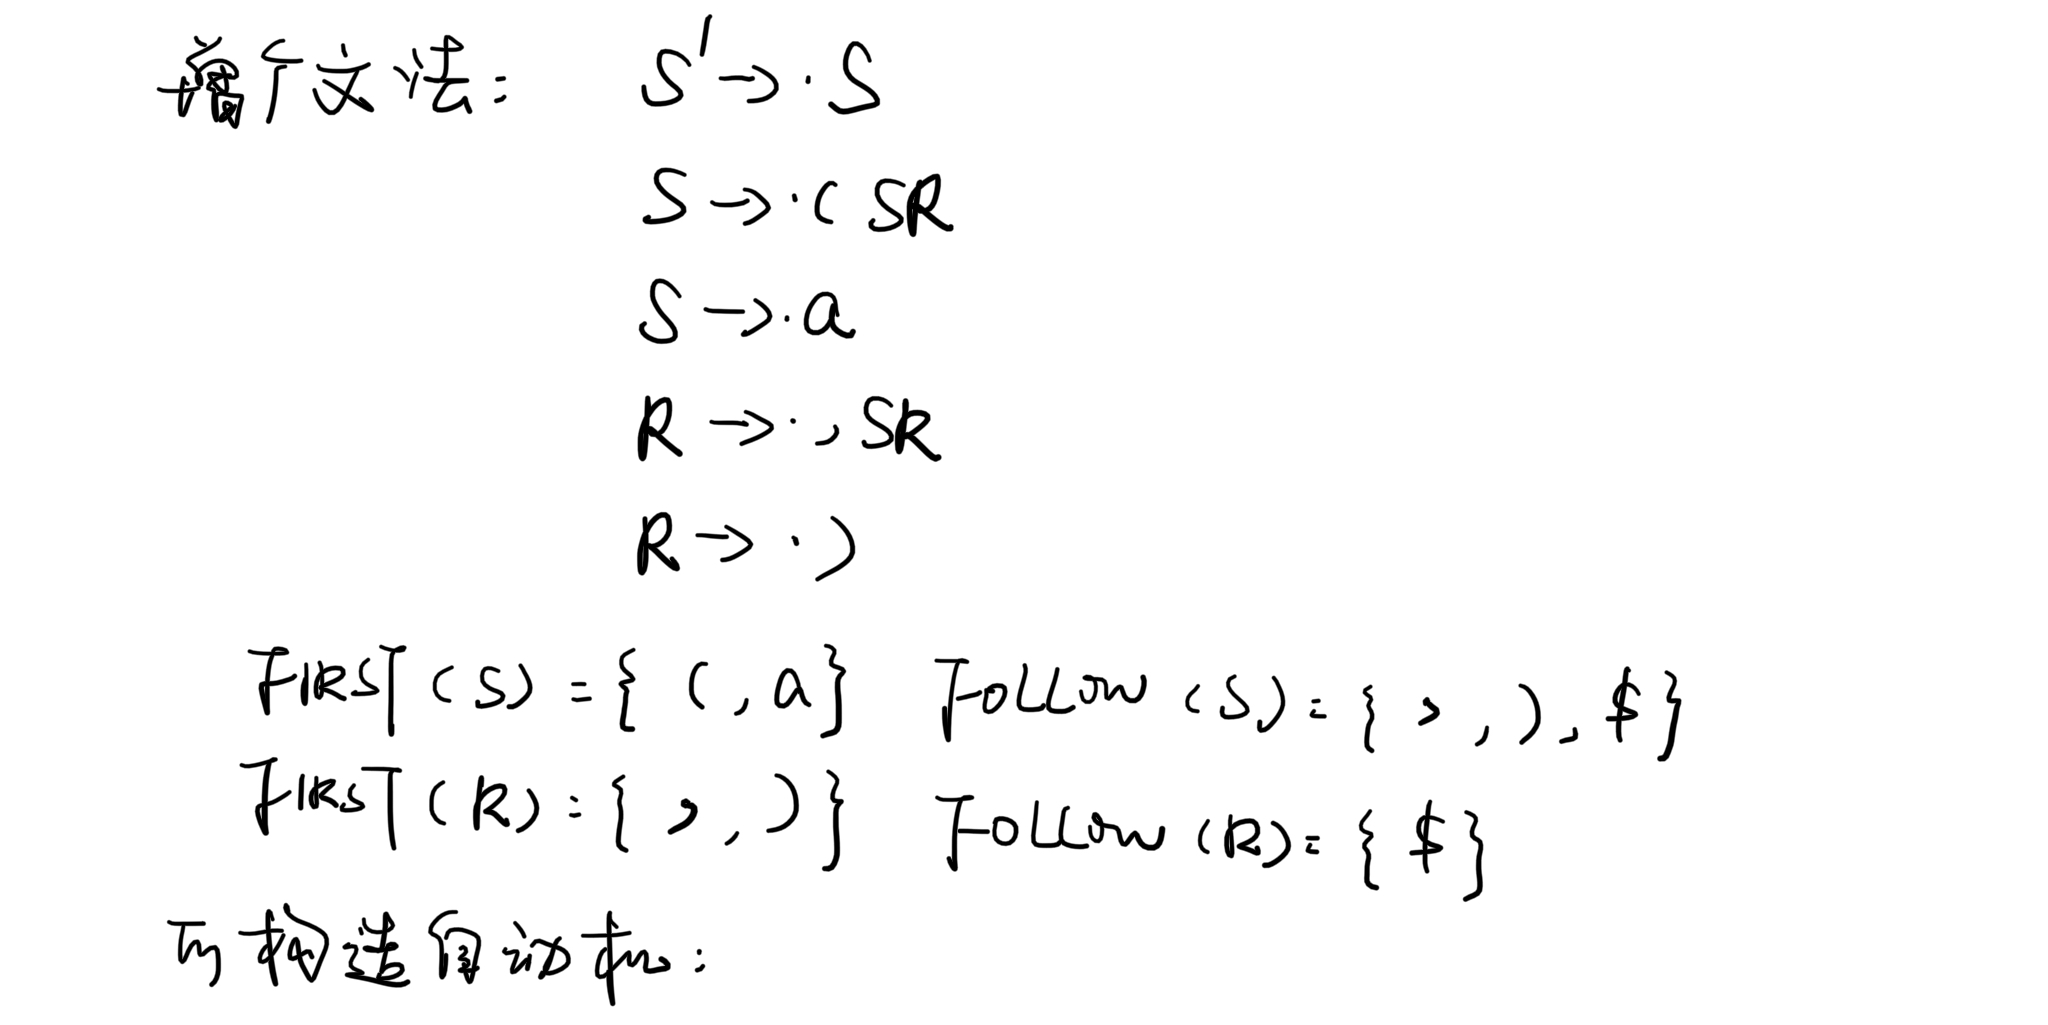 增广文法: S' → ·S
S → ·( SR
S → ·a
R → ·, SR
R → ·)
FIRST(S) = { (, a} FOLLOW(S) = { , , ), $}
FIRST(R) = { , , )} FOLLOW(R) = { $}
可构造自动机: